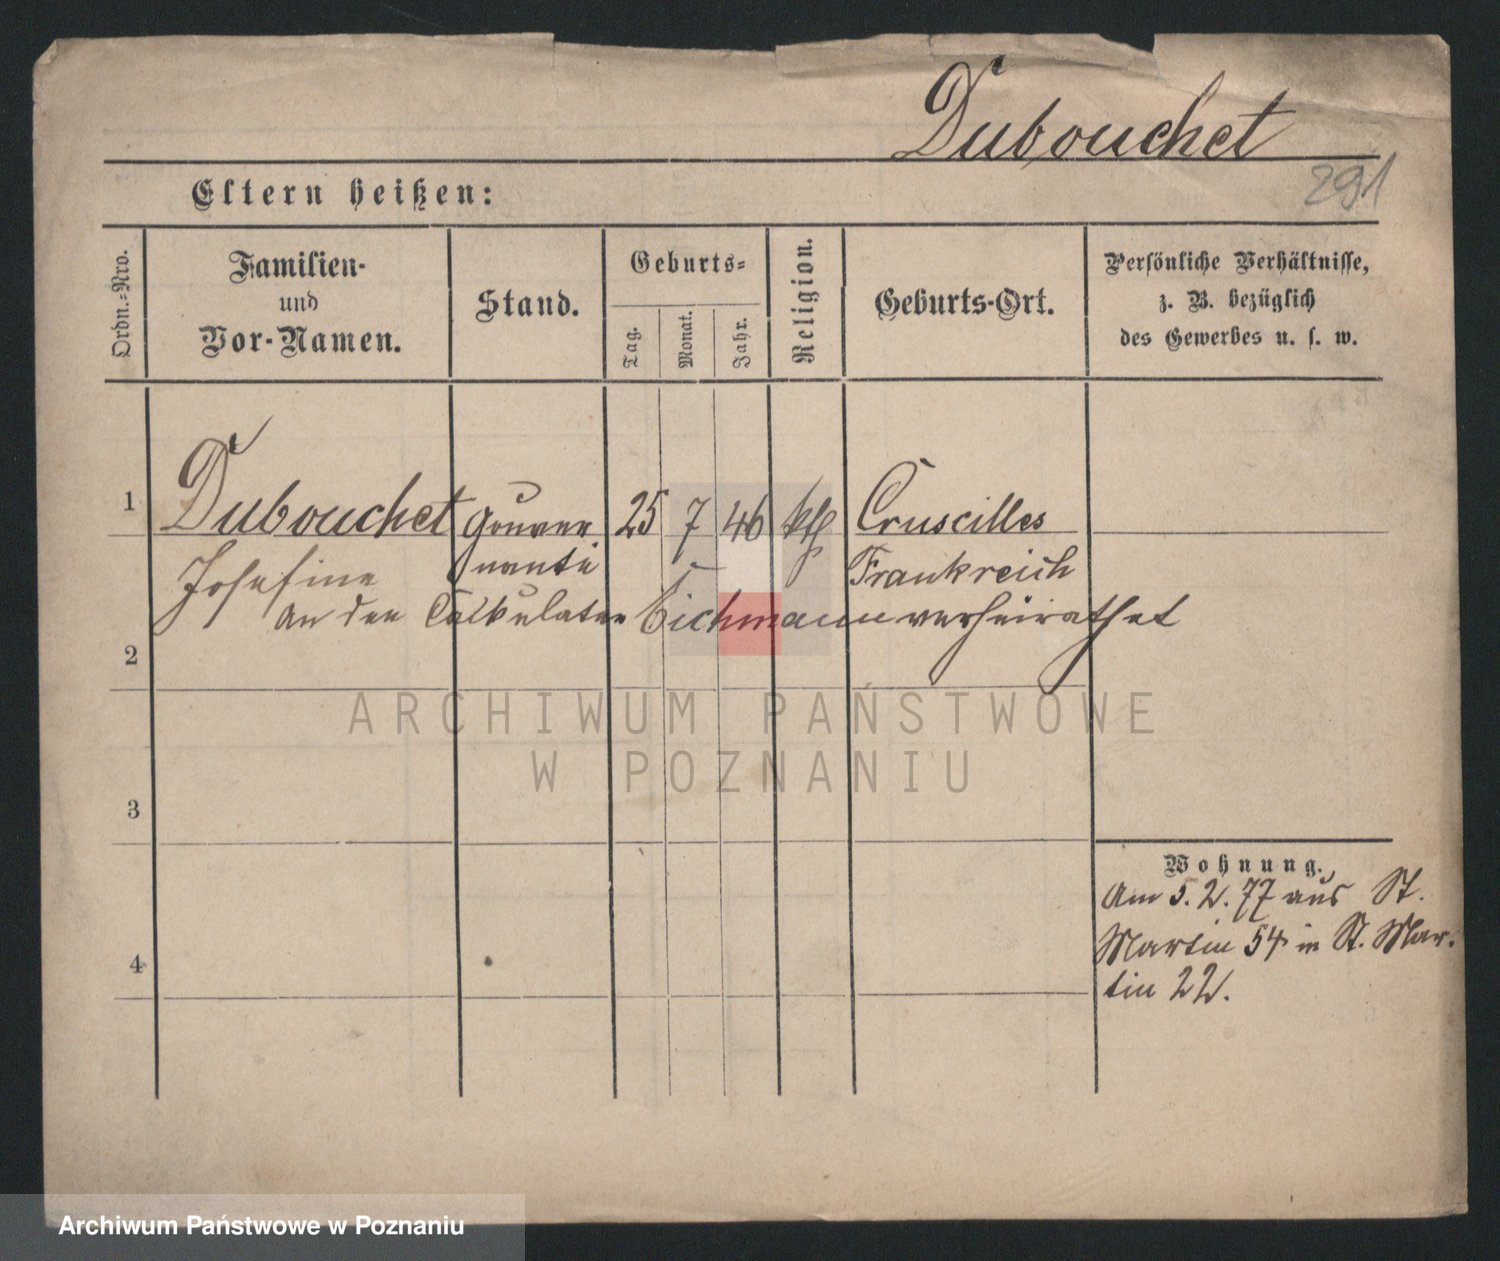 Dubouchet
291
Eltern heißen:
Ordn.-Nro.
Familien-
und
Vor-Namen.
Stand.
Geburts-
Tag.
Monat.
Jahr.
Religion.
Geburts-Ort.
Persönliche Verhältnisse,
z. B. bezüglich
des Gewerbes u. s. w.
1 Dubouchet Gouver 25 7 46 kth Cruscilles
Josefine nante Frankreich
An den Calkulator Eichmann verheirathet
2
ARCHIWUM PAŃSTWOWE
W POZNANIU
3
Wohnung.
Am 5. 2. 77 aus St.
Martin 54 in St. Mar-
tin 22.
4
Archiwum Państwowe w Poznaniu